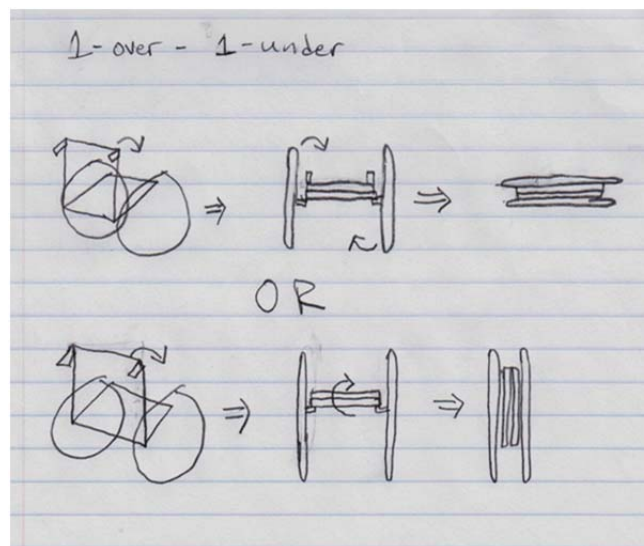 1-over - 1-under
OR